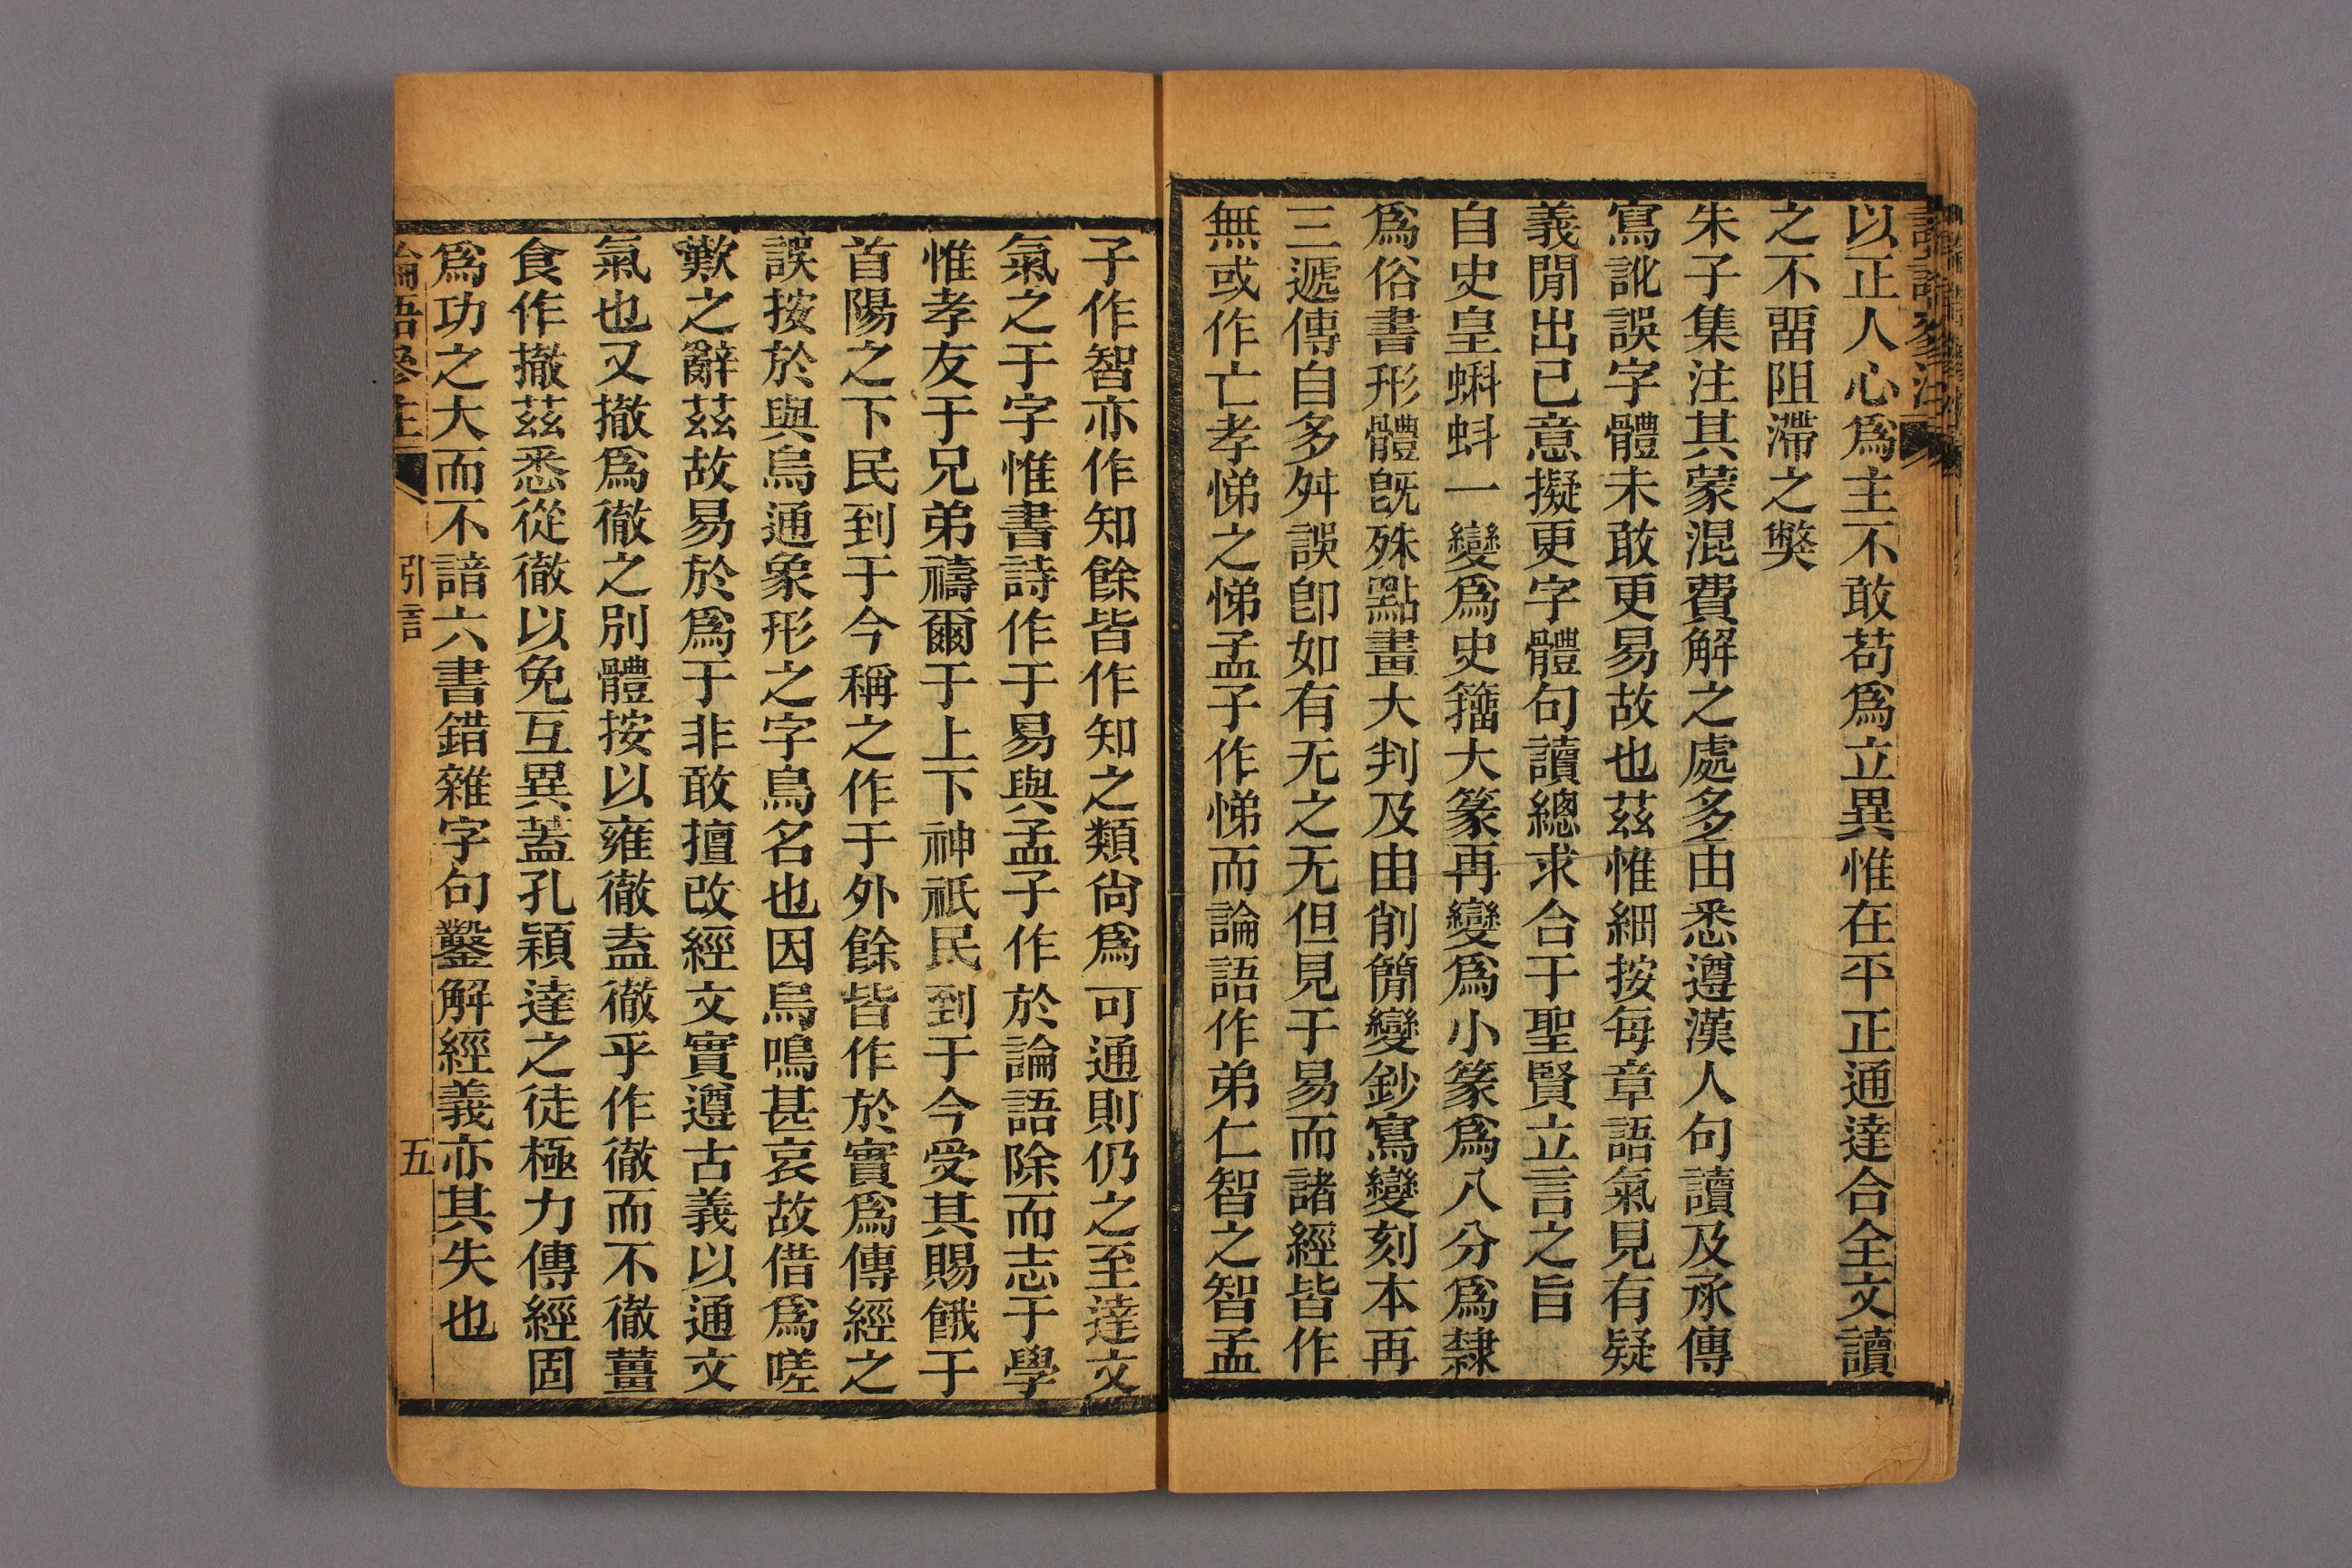 以正人心爲主不敢苟爲立異惟在平正通達合全文讀
之不畱阻滯之獘
朱子集注其蒙混費解之處多由悉遵漢人句讀及承傳
寫訛誤字體未敢更易故也茲惟細按每章語氣見有疑
義閒出已意擬更字體句讀總求合于聖賢立言之旨
自史皇蝌蚪一變爲史籀大篆再變爲小篆爲八分爲隸
爲俗書形體旣殊點畫大判及由削簡變鈔寫變刻本再
三遞傳自多舛誤卽如有无之无但見于易而諸經皆作
無或作亡孝悌之悌孟子作悌而論語作弟仁智之智孟
子作智亦作知餘皆作知之類尙爲可通則仍之至達文
氣之于字惟書詩作于易與孟子作於論語除而志于學
惟孝友于兄弟禱爾于上下神祇民到于今受其賜餓于
首陽之下民到于今稱之作于外餘皆作於實爲傳經之
誤按於與烏通象形之字鳥名也因烏鳴甚哀故借爲嗟
歎之辭茲故易於爲于非敢擅改經文實遵古義以通文
氣也又撤爲徹之別體按以雍徹盍徹乎作徹而不徹薑
食作撤茲悉從徹以免互異蓋孔穎達之徒極力傳經固
爲功之大而不諳六書錯雜字句鑿解經義亦其失也
論語參注
引言
五